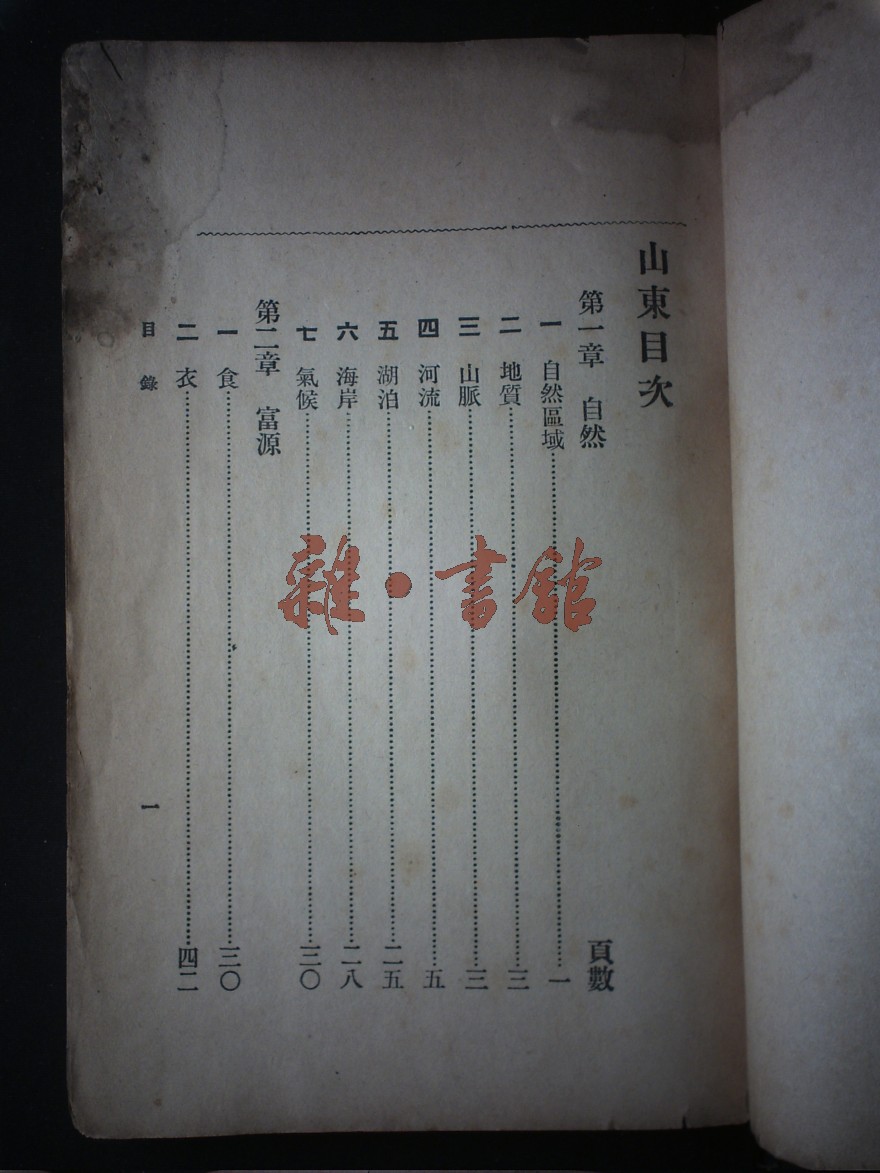 山東目次
第一章　自然　頁數
一　自然區域……一
二　地質……三
三　山脈……三
四　河流……五
五　湖泊……二五
六　海岸……二八
七　氣候……三〇
第二章　富源
一　食……三〇
二　衣……四二
目錄　一
雜·書館